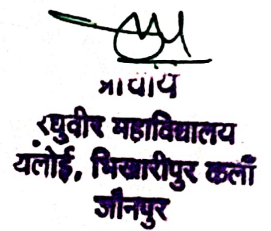 प्राचार्य
रघुवीर महाविद्यालय
थलोई, भिखारीपुर कलाँ
जौनपुर